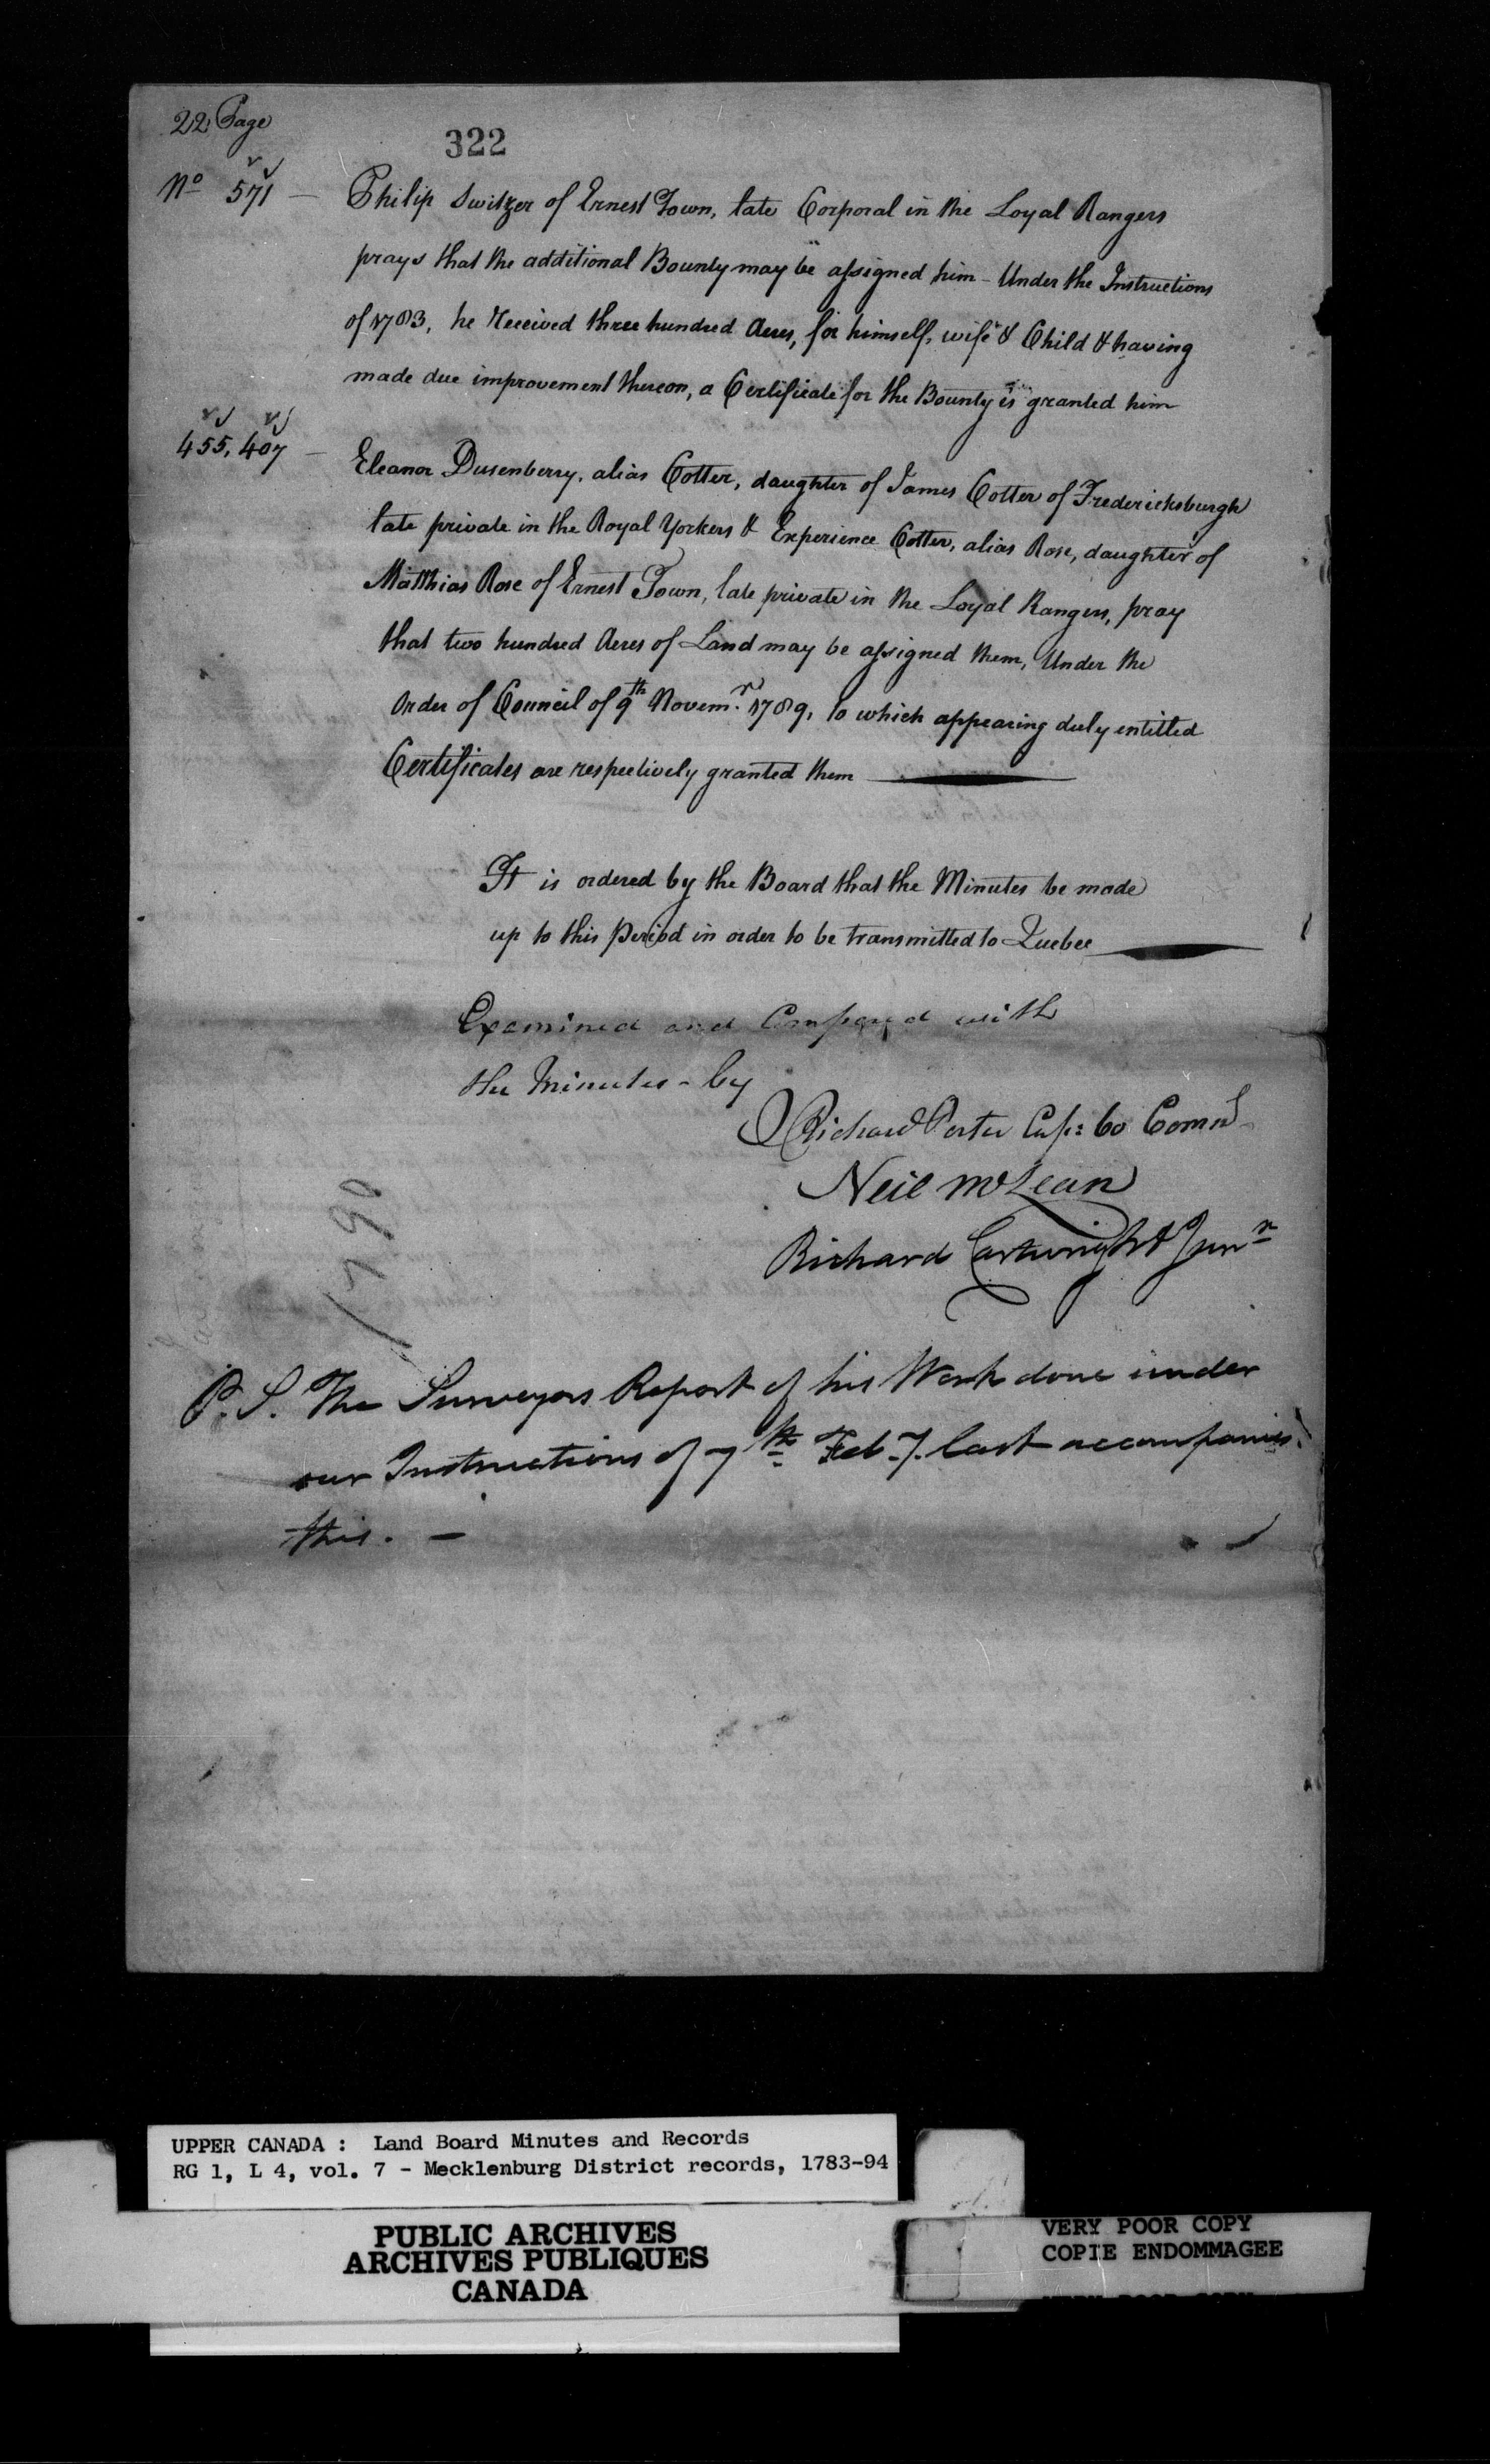 22 Page
322
No 571 — Philip Switzer of Ernest Town, late Corporal in the Loyal Rangers
prays that the additional Bounty may be assigned him - Under the Instructions
of 1783, he Received three hundred Acres, for himself, wife & Child & having
made due improvement thereon, a Certificate for the Bounty is granted him
455, 407 — Eleanor Dusenberry, alias Cotter, daughter of James Cotter of Fredericksburgh
late private in the Royal Yorkers & Experience Cotter, alias Rose, daughter of
Matthias Rose of Ernest Town, late private in the Loyal Rangers, pray
that two hundred Acres of Land may be assigned them, Under the
Order of Council of 9th Novemr. 1789, to which appearing duly entitled
Certificates are respectively granted them
It is ordered by the Board that the Minutes be made
up to this Period in order to be transmitted to Quebec
Examined and Compared with
the Minutes - by
Richard Porter Cap: 60 Comd
Neil McLean
Richard Cartwright Junr
1790
P. S. The Surveyors Report of his Work done under
our Instructions of 7th Feby. last accompanies
this. —
UPPER CANADA : Land Board Minutes and Records
RG 1, L 4, vol. 7 - Mecklenburg District records, 1783-94
PUBLIC ARCHIVES
ARCHIVES PUBLIQUES
CANADA
VERY POOR COPY
COPIE ENDOMMAGEE